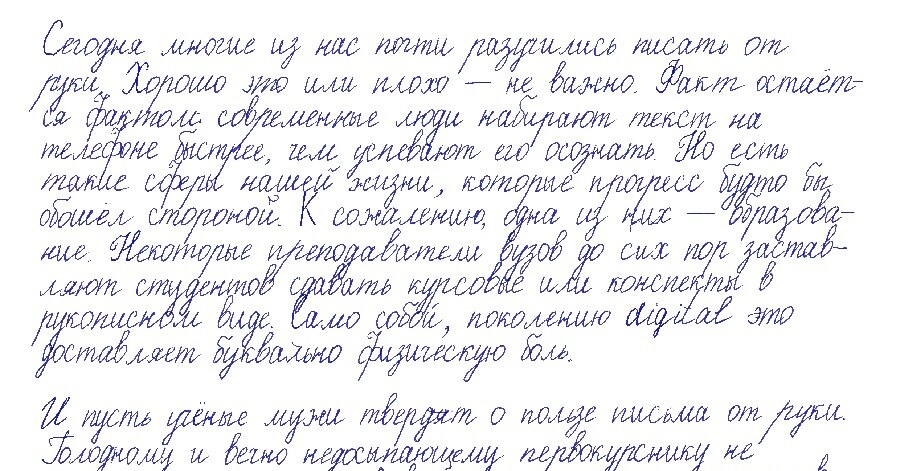 Сегодня многие из нас почти разучились писать от
руки. Хорошо это или плохо — не важно. Факт остаёт-
ся фактом: современные люди набирают текст на
телефоне быстрее, чем успевают его осознать. Но есть
такие сферы нашей жизни, которые прогресс будто бы
обошёл стороной. К сожалению, одна из них — образова-
ние. Некоторые преподаватели вузов до сих пор застав-
ляют студентов сдавать курсовые или конспекты в
рукописном виде. Само собой, поколению digital это
доставляет буквально физическую боль.
И пусть учёные мужи твердят о пользе письма от руки.
Голодному и вечно недосыпающему первокурснику не